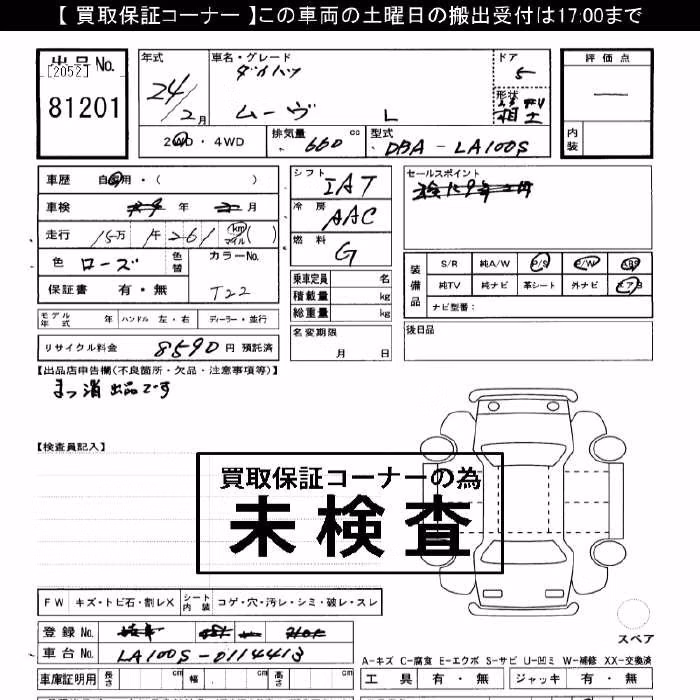 【 買取保証コーナー 】この車両の土曜日の搬出受付は17:00まで
出品No.
[2052]
81201
年式
24/2月
車名・グレード
ダイハツ
ムーヴ L
ドア
5
形状
評価点
内装
2WD・4WD
排気量 660 cc
型式 DBA-LA100S
車歴 自家用・( )
車検 年 月
走行 15万 1千261 km マイル ( )
色 ローズ 色替
カラーNo. T22
保証書 有・無
モデル年式 年 ハンドル 左・右 ディーラー・並行
リサイクル料金 8590 円 預託済
シフト IAT
冷房 AAC
燃料 G
乗車定員 名
積載量 kg
総重量 kg
名変期限
月 日
セールスポイント
装備品
S/R 純A/W P/S P/W ABS
純TV 純ナビ 革シート 外ナビ エアB
ナビ型番：
後日品
【出品店申告欄(不良箇所・欠品・注意事項等)】
まっ消出品です
【検査員記入】
買取保証コーナーの為
未検査
FW キズ・トビ石・割レX シート内装 コゲ・穴・汚レ・シミ・破レ・スレ
登録No.
車台No. LA100S-0114413
車庫証明用 長さ cm 幅 cm 高さ cm
スペア
A-キズ C-腐食 E-エクボ S-サビ U-凹ミ W-補修 XX-交換済
工具 有・無 ジャッキ 有・無